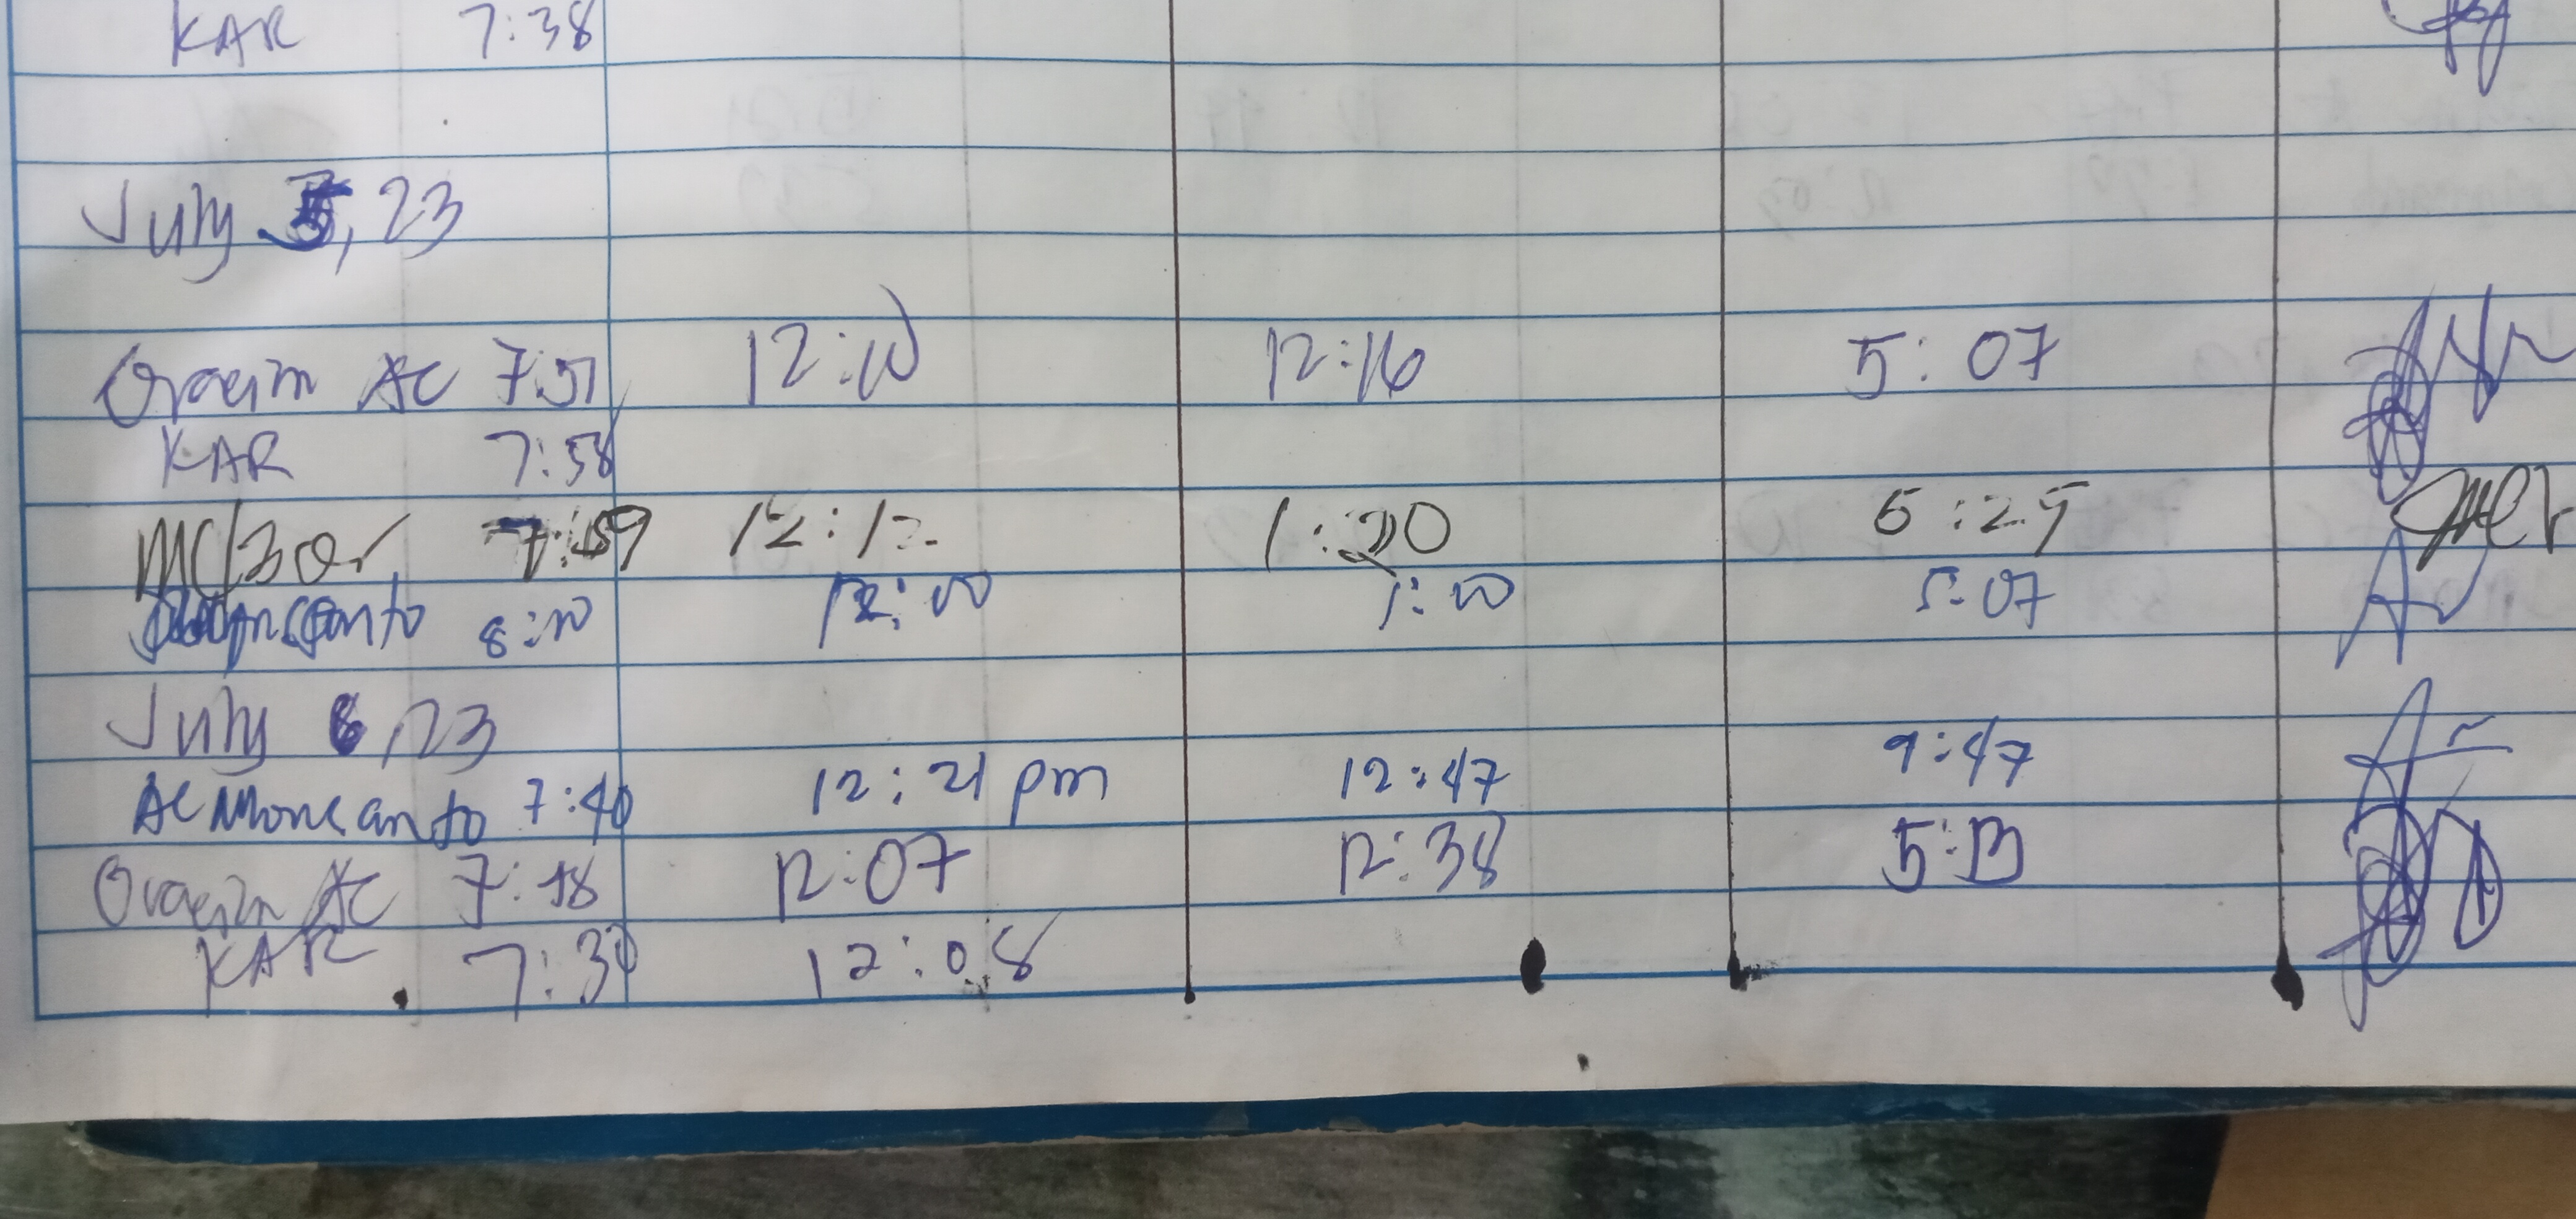 KAR 7:38
July 5, 23
AC 7:51 12:10 12:16 5:07
KAR 7:58
7:59 12:12 1:20 5:25
8:10 12:00 1:00 5:07
July 6, 23
AC Moncanto 7:40 12:21 pm 12:47 9:47
AC 7:18 12:07 12:38 5:13
KAR 7:30 12:08